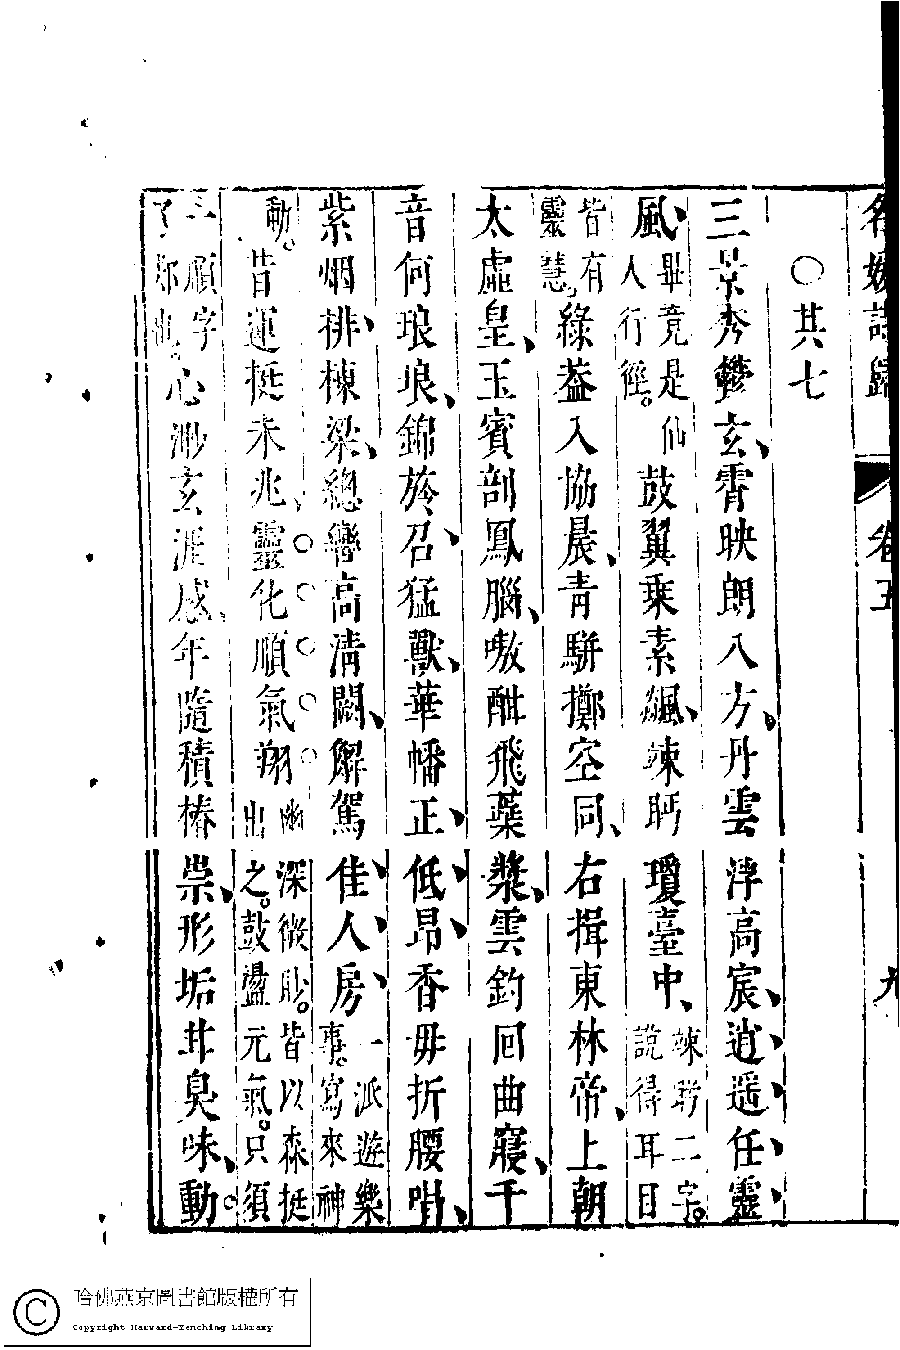 名媛詩歸 卷五 九
○其七
三景秀鬱玄霄映朗八方丹雲浮高宸逍遥任靈
風畢竟是仙人行徑。鼓翼乘素飈竦眄瓊臺中竦眄二字。說得耳目
皆有靈慧。綠葢入協晨青駢擲空同右揖東林帝上朝
太虛皇玉賓剖鳳腦嗷酣飛蘂漿雲鈞囘曲寢千
音何琅琅錦旍召猛獸華幡正低昂香毋折腰唱
紫烟排棟梁總轡高清闕解駕佳人房一派遊樂事。寫來神
動。昔運挺未兆靈化順氣翔幽深微眇。皆以森挺出之。鼓盪元氣。只須
一順字了却也。心渺玄涯感年隨積椿崇形垢甘臭味動
哈佛燕京圖書館版權所有
Copyright Harvard-Yenching Library